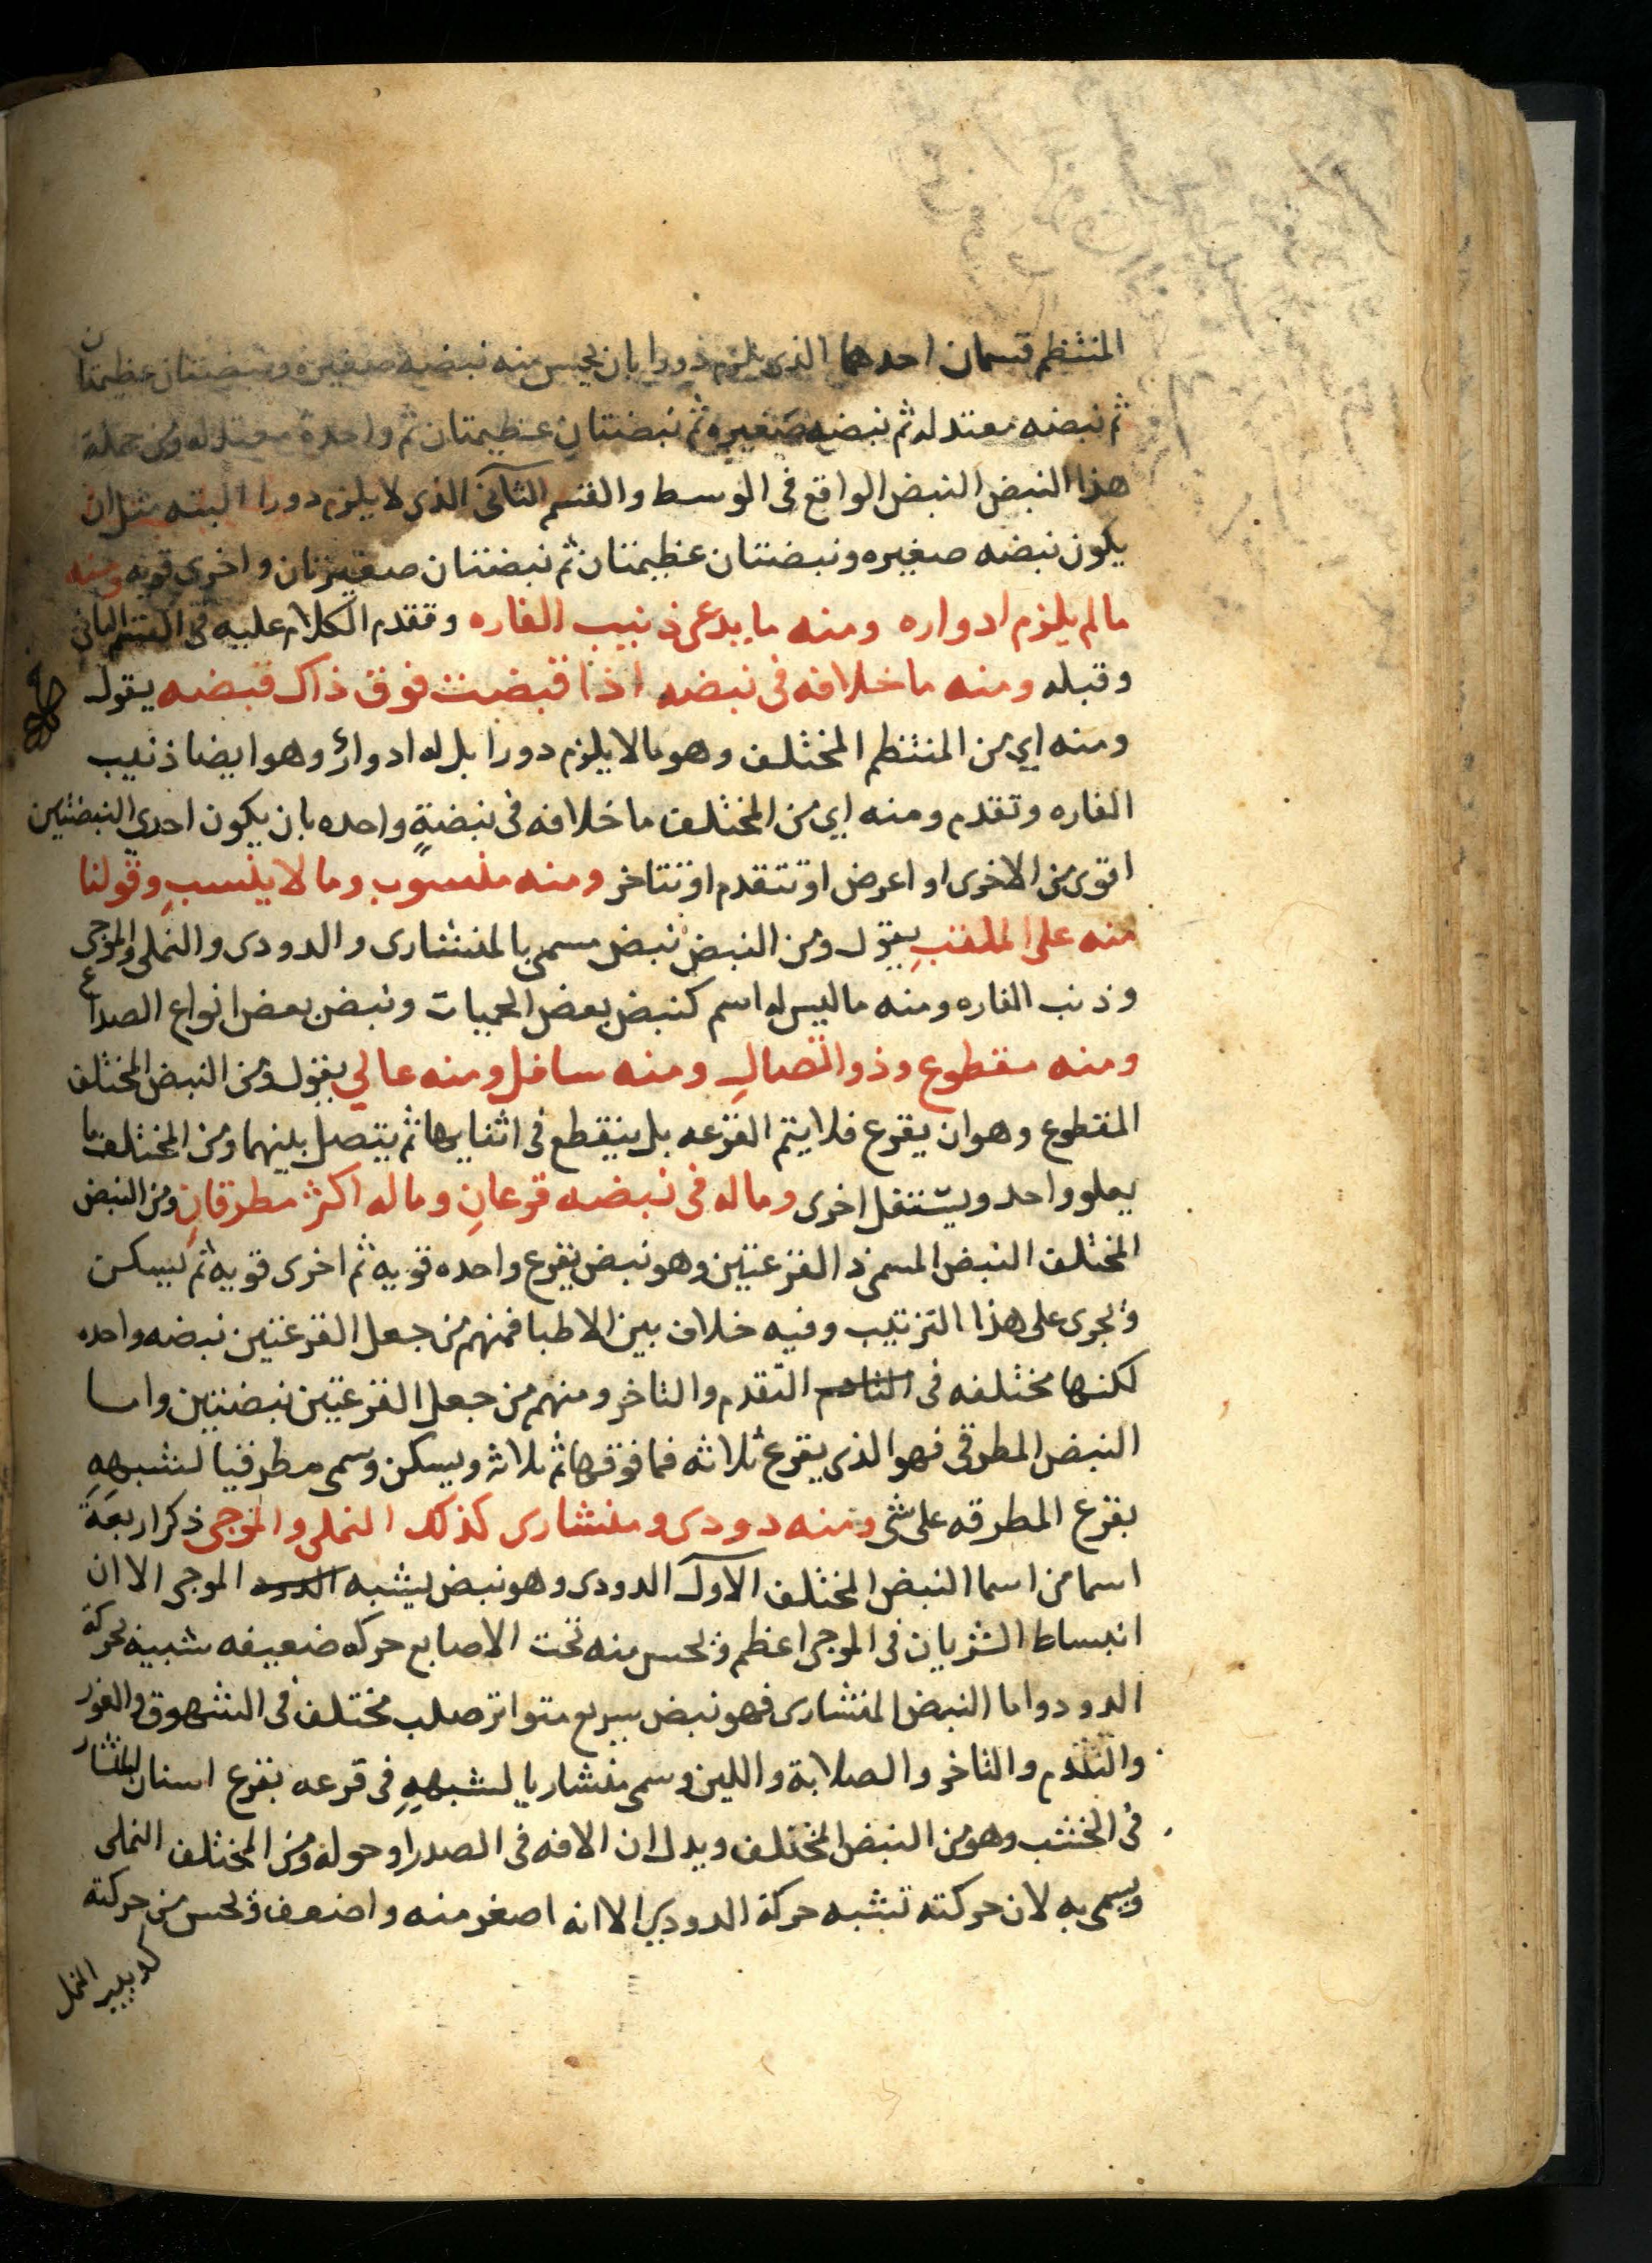 المنتظم قسمان احدهما الذى يلزم دورا بان يحس منه نبضه صغيره ونبضتان عظيمتان
ثم نبضه معتدله ثم نبضه صغيره ثم نبضتان عظيمتان ثم واحدة معتدله ومن جملة
هذا النبض النبض الواقع فى الوسط والقسم الثانى الذى لا يلزم دورا البته مثل ان
يكون نبضه صغيره ونبضتان عظيمتان ثم نبضتان صغيرتان واخرى قويه ومنه
مالم يلزم ادواره ومنه ما يدعى ذنيب الفاره وتقدم الكلام عليه فى القسم الثانى
وقبله ومنه ما خلافه فى نبضه اذا قبضت فوق ذاك قبضه يقول
ومنه اي من المنتظم المختلف وهو مالا يلزم دورا بل له ادوار وهو ايضا ذنيب
الفاره وتقدم ومنه اى من المختلف ما خلافه فى نبضةٍ واحده بان يكون احدي النبضتين
اقوى من الاخرى او اعرض او تتقدم او تتاخر ومنه منسوب وما لا ينسبِ وقولنا
منه على الملقبِ يقول ومن النبض نبض مسمى بالمنشارى والدودى والنملى والموجى
وذنب الفاره ومنه ما ليس له اسم كنبض بعض الحميات ونبض بعض انواع الصداع
ومنه مقطوع وذو اتصالِ ومنه سافل ومنه عالي يقول ومن النبض المختلف
المقطوع وهو ان يقرع فلا يتم القرعه بل ينقطع فى اثنايها ثم يتصل بينهما ومن المختلف ما
يعلو واحد ويستفل اخرى وما له فى نبضه قرعانِ وما له اكثر مطرقانِ ومن النبض
المختلف النبض المسمى ذ القرعتين وهو نبض يقرع واحده قويه ثم اخرى قويه ثم يسكن
ويجرى على هذا الترتيب وفيه خلاف بين الاطبا فمنهم من جعل القرعتين نبضه واحده
لكنها مختلفه فى التقدم والتاخر ومنهم من جعل القرعتين نبضتين واما
النبض المطرقى فهو الذى يقرع ثلاثه فما فوقها ثم ثلاثه ويسكن وسمى مطرقيا لشبههِ
بقرع المطرقه على شى ومنه دودى ومنشارى كذلك النملى والموجى ذكر اربعَةَ
اسما من اسما النبض المختلف الاول الدودى وهو نبض يشبه الدود الموجى الا ان
انبساط الشريان فى الموجى اعظم ويحس منه تحت الاصابع حركه ضعيفه شبيه بحركة
الدود واما النبض المنشارى فهو نبض سريع متواتر صلب مختلف فى الشهوق والغور
والتقدم والتاخر والصلابة واللين وسمى منشاريا لشبههِ فى قرعه بقرع اسنان المنشار
فى الخشب وهو من النبض المختلف ويدل ان الافه فى الصدر او حوله ومن المختلف النملى
ويسمى به لان حركته تشبه حركة الدودي الا انه اصغر منه واضعف ويحس من حركته
كدبيب النمل